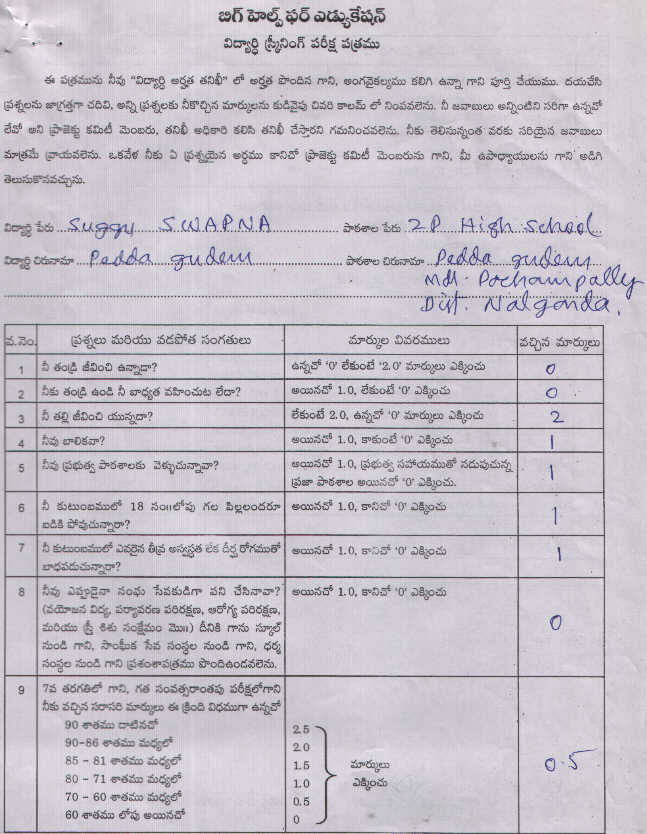 బిగ్ హెల్ప్ ఫర్ ఎడ్యుకేషన్
విద్యార్ధి స్క్రీనింగ్ పరీక్ష పత్రము
ఈ పత్రమును నీవు "విద్యార్ధి అర్హత తనిఖీ" లో అర్హత పొందిన గాని, అంగవైకల్యము కలిగి ఉన్నా గాని పూర్తి చేయుము. దయచేసి
ప్రశ్నలను జాగ్రత్తగా చదివి, అన్ని ప్రశ్నలకు నీకొచ్చిన మార్కులను కుడివైపు చివరి కాలమ్ లో నింపవలెను. నీ జవాబులు అన్నింటిని సరిగా ఉన్నవో
లేవో అని ప్రాజెక్టు కమిటీ మెంబరు, తనిఖీ అధికారి కలిసి తనిఖీ చేస్తారని గమనించవలెను. నీకు తెలిసున్నంత వరకు సరియైన జవాబులు
మాత్రమే వ్రాయవలెను. ఒకవేళ నీకు ఏ ప్రశ్నయైన అర్ధము కానిచో ప్రాజెక్టు కమిటీ మెంబరును గాని, మీ ఉపాధ్యాయులను గాని అడిగి
తెలుసుకొనవచ్చును.
విద్యార్ధి పేరు Suggu SWAPNA పాఠశాల పేరు ZP High School
విద్యార్ధి చిరునామా Pedda gudem పాఠశాల చిరునామా Pedda gudem
Mdl. Pochampally
Dist. Nalgonda.
వ.నెం. ప్రశ్నలు మరియు వడపోత సంగతులు మార్కుల వివరములు వచ్చిన మార్కులు
1 నీ తండ్రి జీవించి ఉన్నాడా? ఉన్నచో '0' లేకుంటే '2.0' మార్కులు ఎక్కించు 0
2 నీకు తండ్రి ఉండి నీ బాధ్యత వహించుట లేదా? అయినచో 1.0, లేకుంటే '0' ఎక్కించు 0
3 నీ తల్లి జీవించి యున్నదా? లేకుంటే 2.0, ఉన్నచో '0' మార్కులు ఎక్కించు 2
4 నీవు బాలికవా? అయినచో 1.0, కాకుంటే '0' ఎక్కించు 1
5 నీవు ప్రభుత్వ పాఠశాలకు వెళ్ళుచున్నావా? అయినచో 1.0, ప్రభుత్వ సహాయముతో నడుపుచున్న
ప్రజా పాఠశాల అయినచో '0' ఎక్కించు. 1
6 నీ కుటుంబములో 18 సం॥లోపు గల పిల్లలందరూ అయినచో 1.0, కానిచో '0' ఎక్కించు 1
బడికి పోవుచున్నారా?
7 నీ కుటుంబములో ఎవరైన తీవ్ర అస్వస్థత లేక దీర్ఘ రోగముతో అయినచో 1.0, కానిచో '0' ఎక్కించు 1
బాధపడుచున్నారా?
8 నీవు ఎప్పుడైనా సంఘ సేవకుడిగా పని చేసినావా? అయినచో 1.0, కానిచో '0' ఎక్కించు 0
(వయోజన విద్య, పర్యావరణ పరిరక్షణ, ఆరోగ్య పరిరక్షణ,
మరియు స్త్రీ శిశు సంక్షేమం మొ॥) దీనికి గాను స్కూల్
నుండి గాని, సాంఘీక సేవ సంస్థల నుండి గాని, ధర్మ
సంస్థల నుండి గాని ప్రశంశాపత్రము పొందిఉండవలెను.
9 7వ తరగతిలో గాని, గత సంవత్సరాంతపు పరీక్షలోగాని
నీకు వచ్చిన సరాసరి మార్కులు ఈ క్రింది విధముగా ఉన్నచో
90 శాతము దాటినచో 2.5
90-86 శాతము మధ్యలో 2.0
85 - 81 శాతము మధ్యలో 1.5 మార్కులు 0.5
80 - 71 శాతము మధ్యలో 1.0 ఎక్కించు
70 - 60 శాతము మధ్యలో 0.5
60 శాతము లోపు అయినచో 0